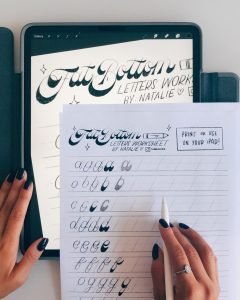 Fat Bottom
LETTERS WORK
BY NATALIE
Fat Bottom
LETTERS WORKSHEET
BY NATALIE
PRINT OR USE
ON YOUR IPAD!
a a a a
b b b b
c c c c
d d d d
e e e e
f f f f
g g g g